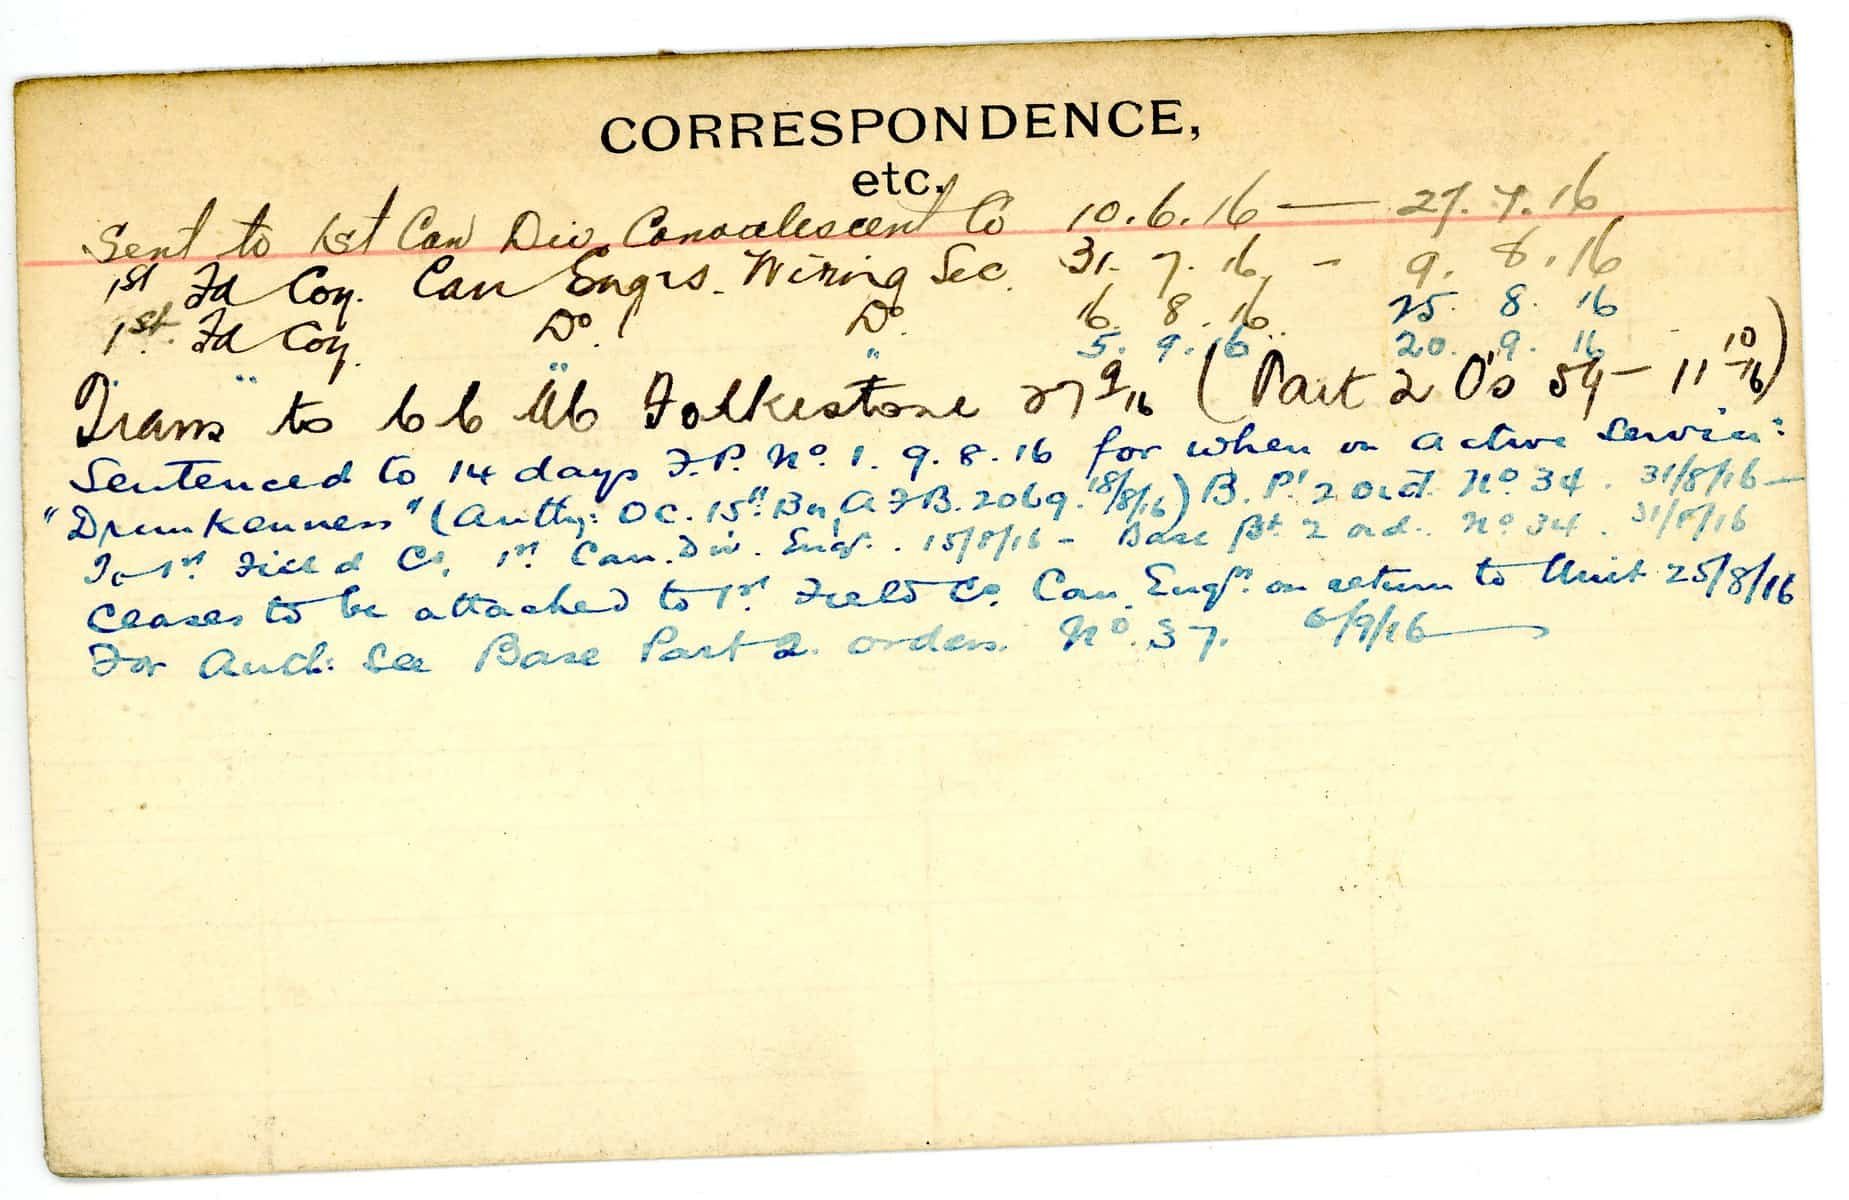 CORRESPONDENCE,
etc.
Sent to 1st Can Div. Convalescent Co 10.6.16 — 27.7.16
1st Fd Coy. Can Engrs. Wiring Sec. 31. 7. 16 - 9. 8. 16
1st. Fd Coy. Do. Do. 16. 8. 16. 25. 8. 16
" " " " 5. 9. 16 20. 9. 16
Trans to C C Folkestone 27 9/16 (Part 2 O's 54 - 11 10/16)
Sentenced to 14 days F.P. No. 1. 9.8.16 for when on active service:
"Drunkenness" (Authy: OC. 15" Bn, A.F.B. 2069. 18/8/16) B. Pt 2 Ord. No. 34. 31/8/16 —
To 1st. Field Co. 1st. Can. Div. Engrs. 15/8/16 - Base Pt 2 ord. No 34. 31/8/16
Ceases to be attached to 1st. Field Co. Can. Engrs. on return to Unit 25/8/16
For Auth: See Base Part 2. orders. No. 37. 6/9/16